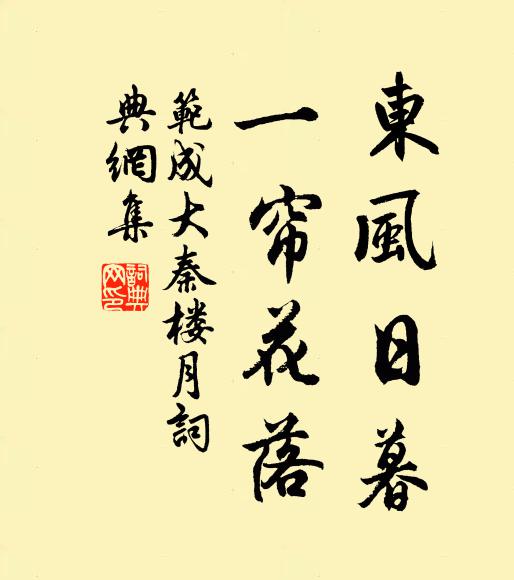 東風日暮
一帘花落
範成大秦楼月詞
典網集
詞典
网印